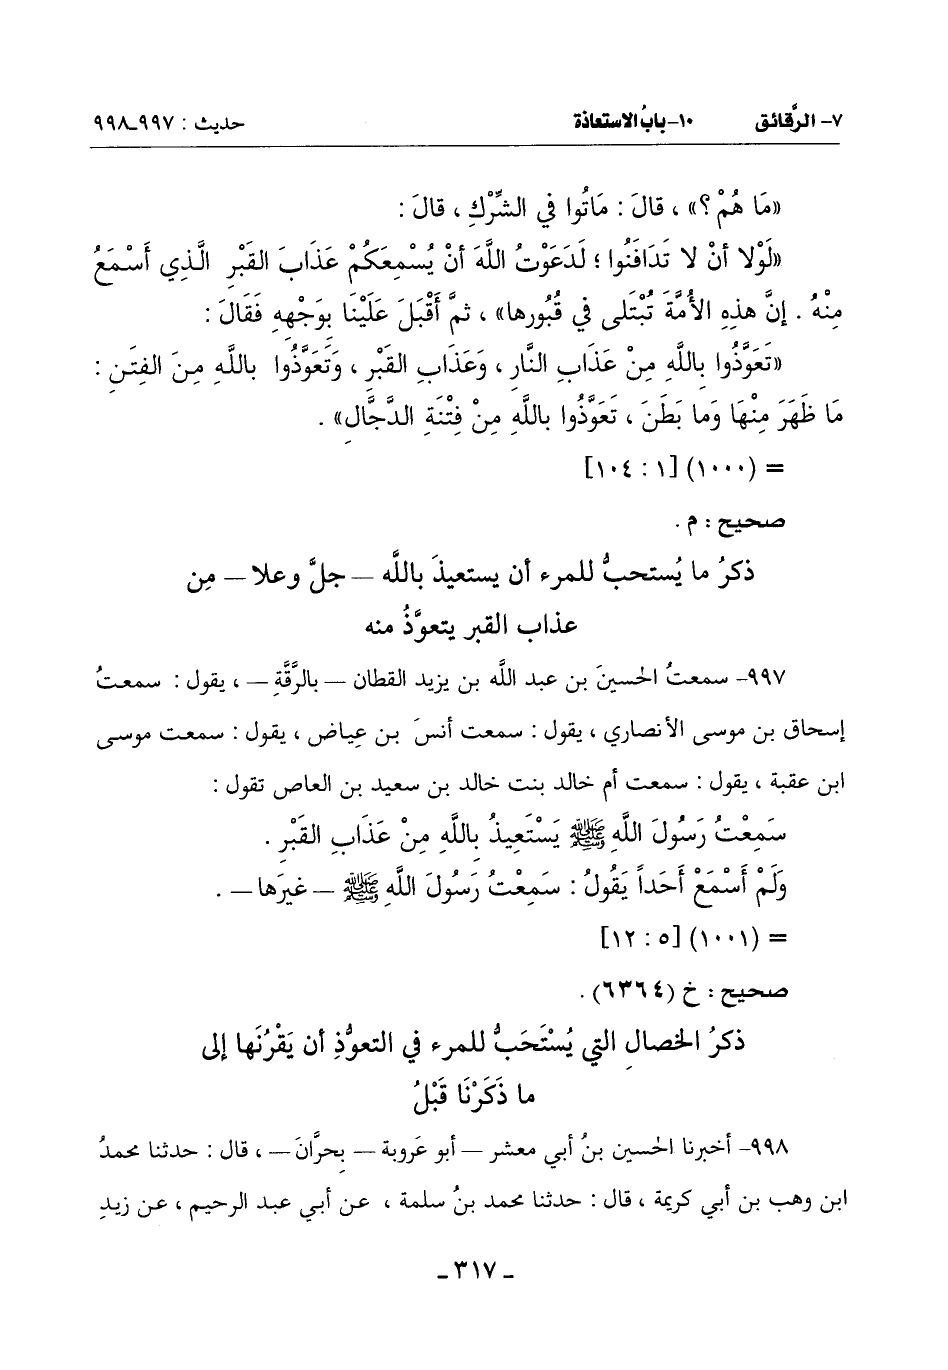 ٧- الرَّقائق ١٠-بابُ الاستعاذة حديث : ٩٩٧ـ٩٩٨
«مَا هُمْ؟» ، قالَ : مَاتُوا في الشِّرْكِ ، قالَ :
«لَوْلا أنْ لا تَدَافَنُوا ؛ لَدَعَوْتُ اللَّهَ أنْ يُسْمِعَكُمْ عَذَابَ القَبْرِ الَّذِي أَسْمَعُ
مِنْهُ . إنَّ هذِهِ الأُمَّةَ تُبْتَلى في قُبُورِها» ، ثمَّ أَقْبَلَ عَلَيْنَا بِوَجْهِهِ فَقَالَ :
«تَعَوَّذُوا بِاللَّهِ مِنْ عَذَابِ النَّارِ ، وَعَذَابِ القَبْرِ ، وَتَعَوَّذُوا بِاللَّهِ مِنَ الفِتَنِ :
مَا ظَهَرَ مِنْهَا وَمَا بَطَنَ ، تَعَوَّذُوا بِاللَّهِ مِنْ فِتْنَةِ الدَّجَّالِ» .
= (١٠٠٠) [١ : ١٠٤]
صحيح : م .
ذكرُ ما يُستحبُّ للمرء أن يستعيذَ باللَّه – جلَّ وعلا – مِن
عذاب القبر يتعوَّذُ منه
٩٩٧- سمعتُ الحسينَ بن عبد اللَّه بن يزيد القطان – بالرَّقَّةِ – ، يقول : سمعتُ
إسحاق بن موسى الأنصاري ، يقول : سمعت أنسَ بن عِياض ، يقول : سمعت موسى
ابن عقبة ، يقول : سمعت أم خالد بنت خالد بن سعيد بن العاص تقول :
سَمِعْتُ رَسُولَ اللَّهِ ﷺ يَسْتَعِيذُ بِاللَّهِ مِنْ عَذَابِ القَبْرِ .
وَلَمْ أَسْمَعْ أَحَداً يَقُولُ : سَمِعْتُ رَسُولَ اللَّهِ ﷺ – غيرَها – .
= (١٠٠١) [٥ : ١٢]
صحيح : خ (٦٣٦٤) .
ذكرُ الخصالِ التي يُسْتَحَبُّ للمرء في التعوُّذِ أن يَقْرُنَها إلى
ما ذَكَرْنَا قَبْلُ
٩٩٨- أخبرنا الحسين بنُ أبي معشر – أبو عَروبة – بِحرَّانَ – ، قال : حدثنا محمدُ
ابن وهب بن أبي كريمة ، قال : حدثنا محمد بنُ سلمة ، عن أبي عبد الرحيم ، عن زيدِ
ـ ٣١٧ ـ